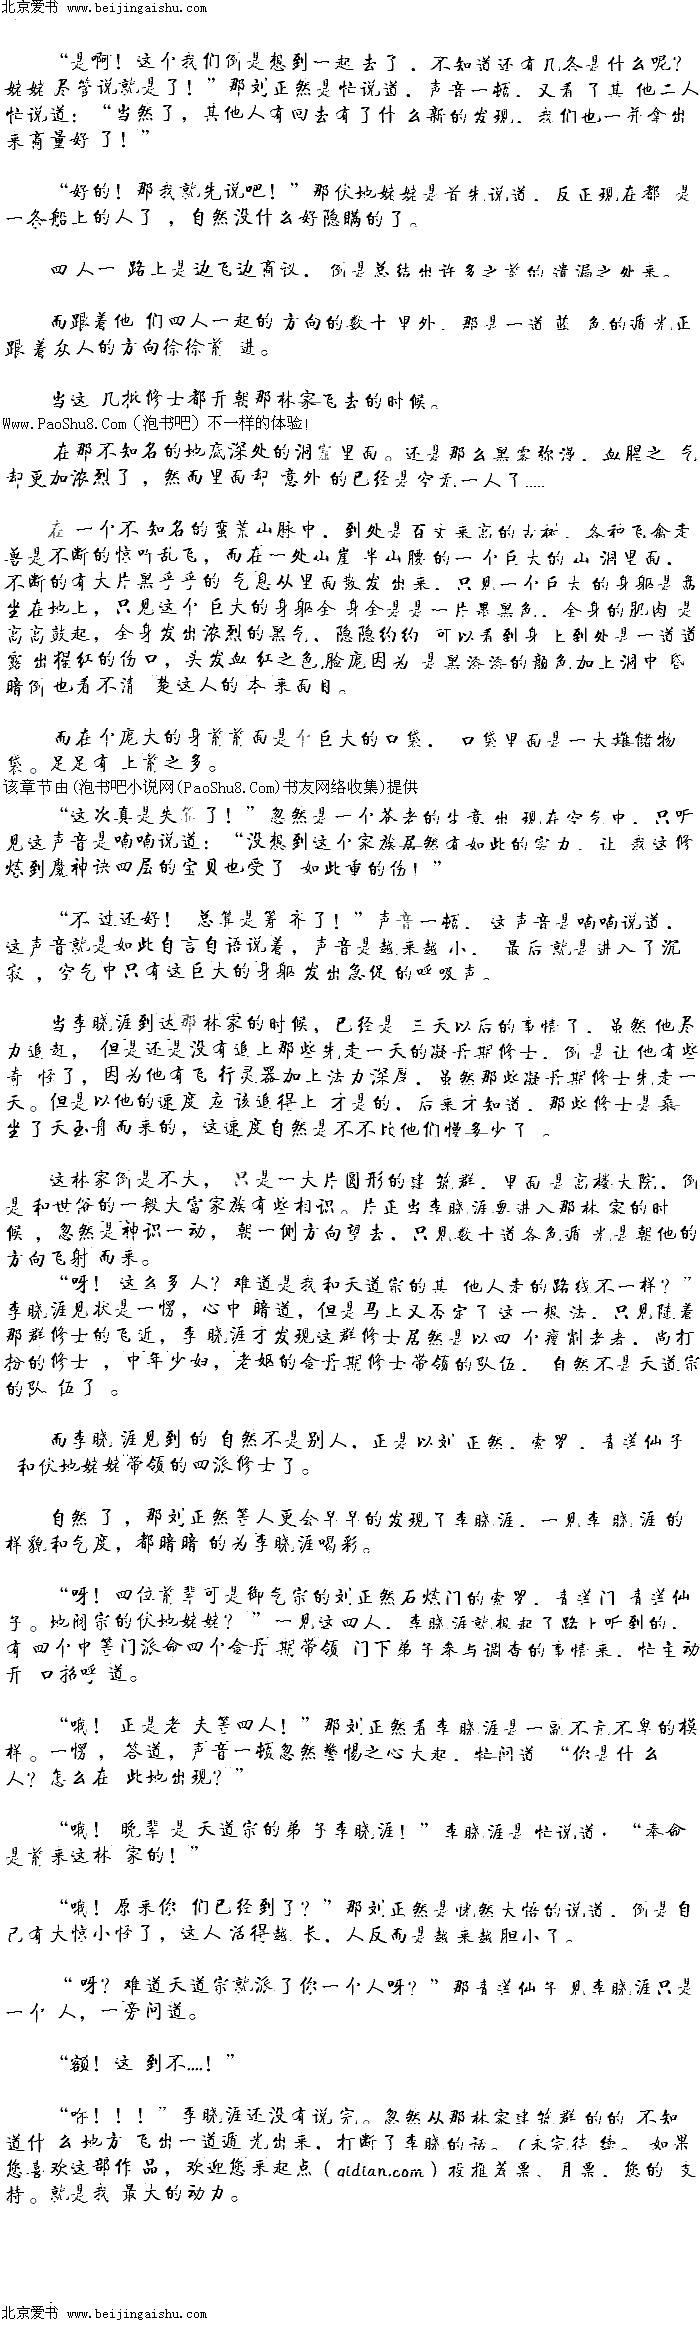 北京爱书 www.beijingaishu.com
“是啊！这个我们倒是想到一起去了，不知道还有几条是什么呢？
姥姥尽管说就是了！”那刘正然是忙说道，声音一顿，又看了其他二人
忙说道：“当然了，其他人有回去有了什么新的发现，我们也一并拿出
来商量好了！”
“好的！那我就先说吧！”那伏地姥姥是首先说道，反正现在都是
一条船上的人了，自然没什么好隐瞒的了。
四人一路上是边飞边商议，倒是总结出许多之前的遗漏之处来。
而跟着他们四人一起的方向的数十里外，那是一道蓝色的遁光正
跟着众人的方向徐徐前进。
当这几批修士都开朝那林家飞去的时候。
Www.PaoShu8.Com（泡书吧）不一样的体验！
在那不知名的地底深处的洞窟里面。还是那么黑雾弥漫，血腥之气
却更加浓烈了，然而里面却意外的已经是空无一人了.....
在一个不知名的蛮荒山脉中，到处是百丈来高的古树，各种飞禽走
兽是不断的惊吓乱飞，而在一处山崖半山腰的一个巨大的山洞里面，
不断的有大片黑乎乎的气息从里面散发出来，只见一个巨大的身躯是盘
坐在地上，只见这个巨大的身躯全身全是是一片墨黑色，全身的肌肉是
高高鼓起，全身发出浓烈的黑气，隐隐约约可以看到身上到处是一道道
露出猩红的伤口，头发血红之色脸庞因为是黑漆漆的颜色加上洞中昏
暗倒也看不清楚这人的本来面目。
而在个庞大的身前前面是个巨大的口袋，口袋里面是一大堆储物
袋。足足有上前之多。
该章节由(泡书吧小说网(PaoShu8.Com)书友网络收集)提供
“这次真是失策了！”忽然是一个苍老的生意出现在空气中，只听
见这声音是喃喃说道：“没想到这个家族居然有如此的实力，让我这修
炼到魔神诀四层的宝贝也受了如此重的伤！”
“不过还好！总算是筹齐了！”声音一顿，这声音是喃喃说道，
这声音就是如此自言自语说着，声音是越来越小，最后就是进入了沉
寂，空气中只有这巨大的身躯发出急促的呼吸声。
当李晓涯到达那林家的时候，已经是三天以后的事情了，虽然他尽
力追赶，但是还是没有追上那些先走一天的凝丹期修士，倒是让他有些
奇怪了，因为他有飞行灵器加上法力深厚，虽然那些凝丹期修士先走一
天。但是以他的速度应该追得上才是的，后来才知道，那些修士是乘
坐了天玉舟而来的，这速度自然是不不比他们慢多少了。
这林家倒是不大，只是一大片圆形的建筑群，里面是高楼大院，倒
是和世俗的一般大富家族有些相识。片正当李晓涯要进入那林家的时
候，忽然是神识一动，朝一侧方向望去，只见数十道各色遁光是朝他的
方向飞射而来。
“呀！这么多人？难道是我和天道宗的其他人走的路线不一样？”
李晓涯见状是一愣，心中暗道，但是马上又否定了这一想法，只见随着
那群修士的飞近，李晓涯才发现这群修士居然是以四个瘦削老者，尚打
扮的修士，中年少妇，老妪的金丹期修士带领的队伍，自然不是天道宗
的队伍了。
而李晓涯见到的自然不是别人，正是以刘正然，索罗，青莲仙子
和伏地姥姥带领的四派修士了。
自然了，那刘正然等人更会早早的发现了李晓涯，一见李晓涯的
样貌和气度，都暗暗的为李晓涯喝彩。
“呀！四位前辈可是御气宗的刘正然石烁门的索罗，青莲门青莲仙
子。地阁宗的伏地姥姥？”一见这四人，李晓涯就想起了路上听到的，
有四个中等门派命四个金丹期带领门下弟子参与调查的事情来，忙主动
开口招呼道。
“哦！正是老夫等四人！”那刘正然看李晓涯是一副不亢不卑的模
样。一愣，答道，声音一顿忽然警惕之心大起，忙问道“你是什么
人？怎么在此地出现？”
“哦！晚辈是天道宗的弟子李晓涯！”李晓涯是忙说道，“奉命
是前来这林家的！”
“哦！原来你们已经到了？”那刘正然是恍然大悟的说道，倒是自
己有大惊小怪了，这人活得越长，人反而是越来越胆小了。
“呀？难道天道宗就派了你一个人呀？”那青莲仙子见李晓涯只是
一个人，一旁问道。
“额！这到不....！”
“咋！！！”李晓涯还没有说完。忽然从那林家建筑群的的不知
道什么地方飞出一道遁光出来，打断了李晓的话。（未完待续。如果
您喜欢这部作品，欢迎您来起点（qidian.com）投推荐票、月票，您的支
持。就是我最大的动力。
北京爱书 www.beijingaishu.com